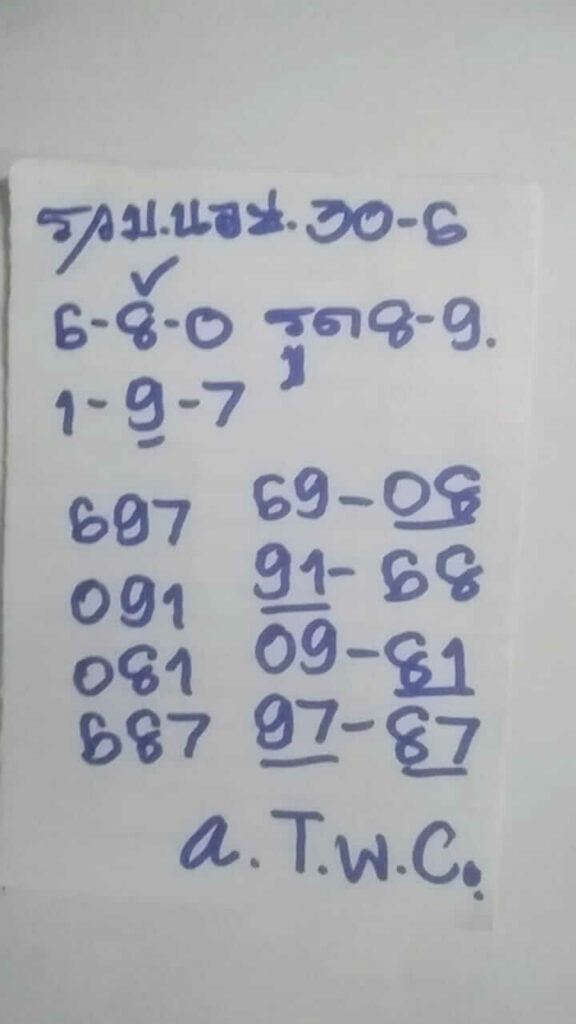 30-6
6-8-0 รูด 8-9.
1-9-7
697 69-08
091 91-68
081 09-81
687 97-87
a.T.W.C.